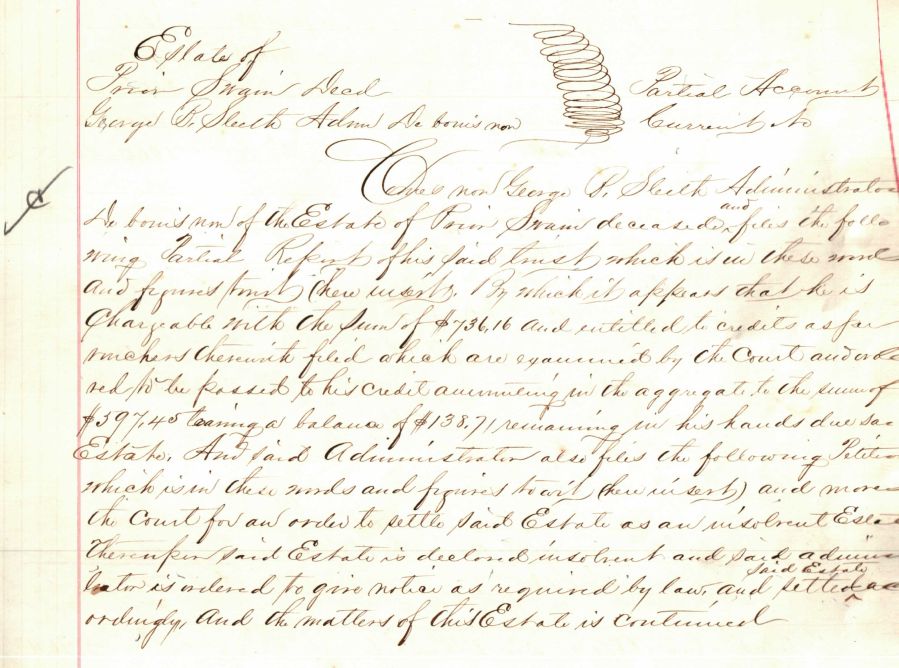 Estate of
Prior Swain Decd
Partial Account
George B. Sleeth Admr De bonis non
Current No
Comes now George B. Sleeth Administrator
De bonis non of the Estate of Prior Swain deceased and files the follo
wing Partial Report of his said trust which is in these words
and figures towit (here insert). By which it appears that he is
Chargeable with the sum of $736.16 and entitled to credits as far
vouchers therewith filed which are examined by the Court and orde
red to be passed to his credit amounting in the aggregate to the sum of
$597.45 leaving a balance of $138.71 remaining in his hands due sa
Estate. And said Administrator also files the following Petition
which is in these words and figures to wit (here insert) and moves
the Court for an order to settle said Estate as an insolvent Estate
Thereupon said Estate is declared insolvent and said admin
istrator is ordered to give notice as required by law, and settle said Estate ac
ordingly, And the matters of this Estate is continued